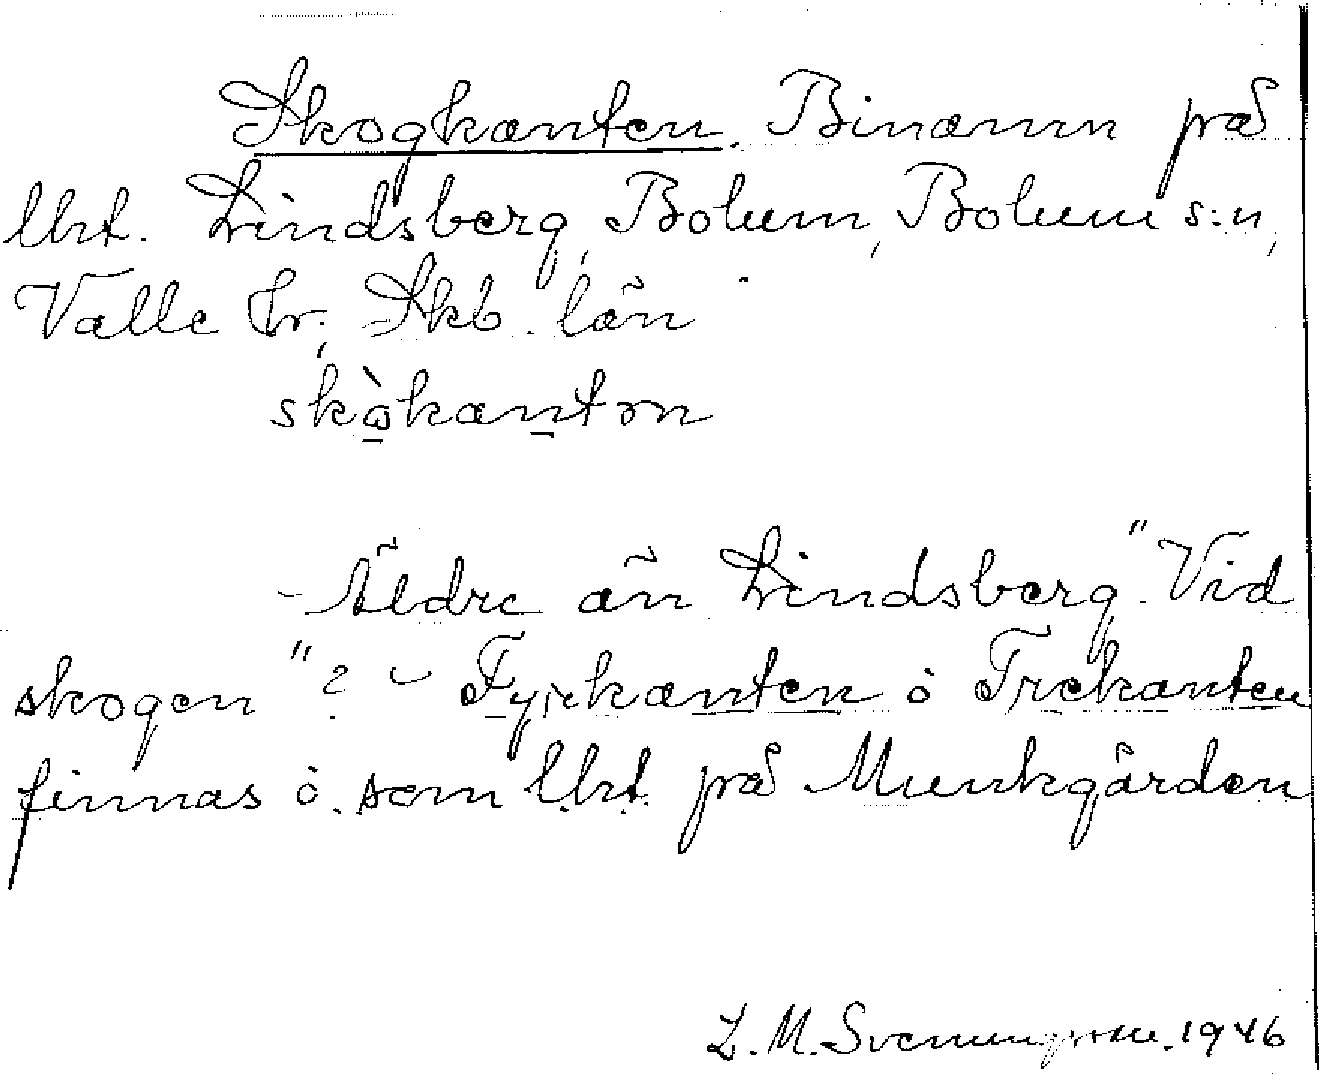 Skogkanten. Binamn på
lht. Lindsberg, Bolum, Bolum s:n,
Valle hr, Skb. län
skòkantən
- Äldre än Lindsberg. "Vid
skogen"? - Fyrkanten o Trekanten
finnas o. som lht. på Munkgården
L. M. Svenungsson. 1946